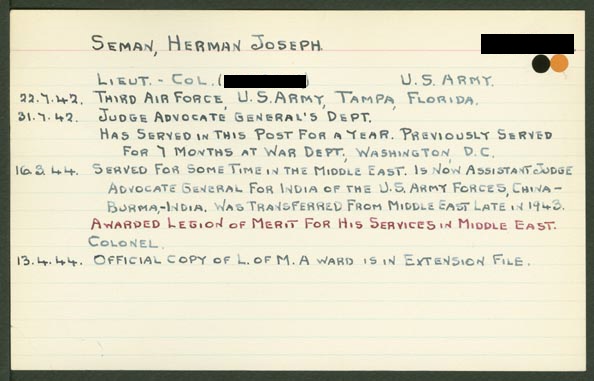 SEMAN, HERMAN JOSEPH.
LIEUT. - COL. ( ) U.S. ARMY.
22.7.42. THIRD AIR FORCE, U.S. ARMY, TAMPA, FLORIDA.
31.7.42. JUDGE ADVOCATE GENERAL'S DEPT.
HAS SERVED IN THIS POST FOR A YEAR. PREVIOUSLY SERVED
FOR 7 MONTHS AT WAR DEPT, WASHINGTON, D.C.
16.3.44. SERVED FOR SOME TIME IN THE MIDDLE EAST. IS NOW ASSISTANT JUDGE
ADVOCATE GENERAL FOR INDIA OF THE U.S. ARMY FORCES, CHINA-
BURMA,-INDIA. WAS TRANSFERRED FROM MIDDLE EAST LATE IN 1943.
AWARDED LEGION OF MERIT FOR HIS SERVICES IN MIDDLE EAST.
COLONEL.
13.4.44. OFFICIAL COPY OF L. OF M. A WARD IS IN EXTENSION FILE.